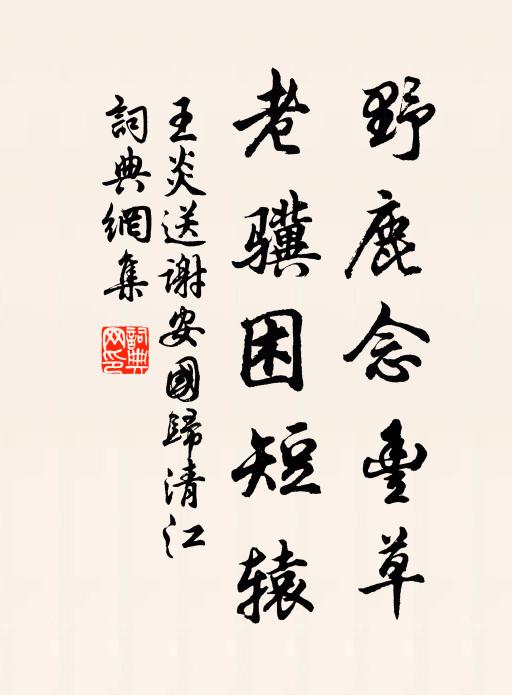 野鹿念豊草
老骥困短辕
王炎送谢安國歸清江
詞典網集
詞典网印